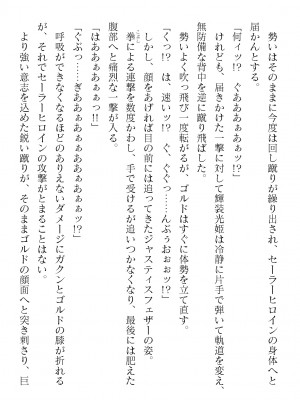 勢いはそのままに今度は回し蹴りが繰り出され、セーラーヒロインの身体へと
届かんとする。
「何ィッ!? ぐあああぁぁッ!?」
けれども、届きかけた一撃に対して輝装光姫は冷静に片手で弾いて軌道を変え、
無防備な背中を逆に蹴り飛ばした。
勢いよく吹っ飛び一度転がるが、ゴルドはすぐに体勢を立て直す。
「くっ!? は、速いッ!? ぐ、ぐぐっ……んぶぅおぉッ!?」
しかし、顔をあげれば目の前には迫ってきたジャスティスフェザーの姿。
拳による連撃を数度かわし、手で受けるが追いつかなくなり、最後には肥えた
腹部へと痛烈な一撃が入る。
「はあああぁぁっ!!」
「ぐぶっ……ぎああぁぁぁぁぁッ!?」
呼吸ができなくなるほどのありえないダメージにガクンとゴルドの膝が折れる
が、それでセーラーヒロインの攻撃がとまることはない。
より強い意志を込めた鋭い蹴りが、そのままゴルドの顔面へと突き刺さり、巨